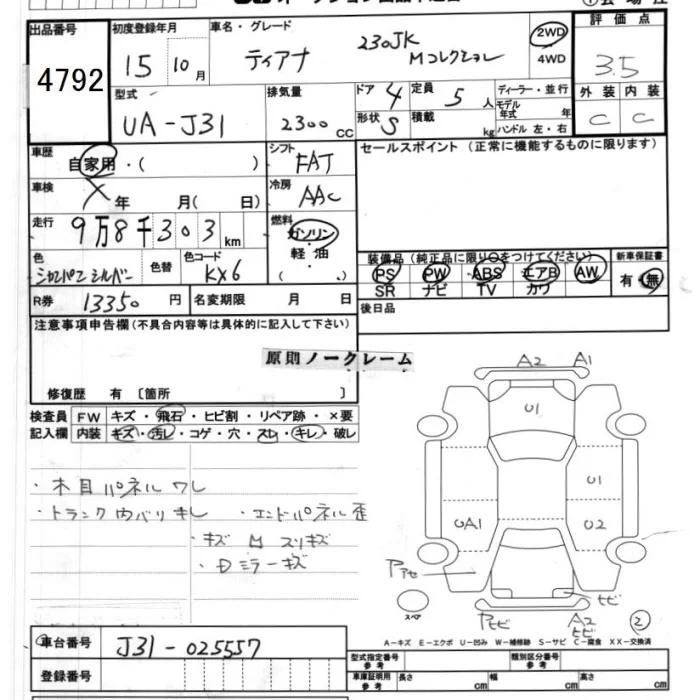 出品番号
4792
初度登録年月
15年 10月
車名・グレード
ティアナ 230JK Mコレクション
2WD
4WD
評価点
3.5
外装 内装
C C
型式
UA-J31
排気量
2300 CC
ドア 4
形状 S
定員 5 人
積載 kg
ディーラー・並行
モデル年式 年
ハンドル 左・右
車歴 自家用・( )
シフト FAT
セールスポイント (正常に機能するものに限ります)
車検 X 年 月( 日)
冷房 AAC
走行 9万8千303 km
燃料 ガソリン
軽油
( )
色 シャンパンシルバー
色替
色コード KX6
装備品(純正品に限り○をつけてください)
新車保証書
PS PW ABS エアB AW
有・無
SR ナビ TV カワ
R券 13350 円
名変期限 月 日
後日品
注意事項申告欄(不具合内容等は具体的に記入して下さい)
原則ノークレーム
修復歴 有 〔箇所 〕
検査員 FW キズ・飛石・ヒビ割・リペア跡・×要
記入欄 内装 キズ・汚レ・コゲ・穴・スレ・キレ・破レ
・木目パネルワレ
・トランク内バリキレ
・エンドパネル歪
・キズ M スリキズ
・Dミラーキズ
A2 A1
U1
U1
UA1
U2
ヒビ
スペア
A2
ヒビ
2
A-キズ E-エクボ U-凹み W-補修跡 S-サビ C-腐食 XX-交換済
車台番号 J31-025557
登録番号
型式指定番号 参考
類別区分番号 参考
車庫証明用 参考 長さ cm 幅 cm 高さ cm